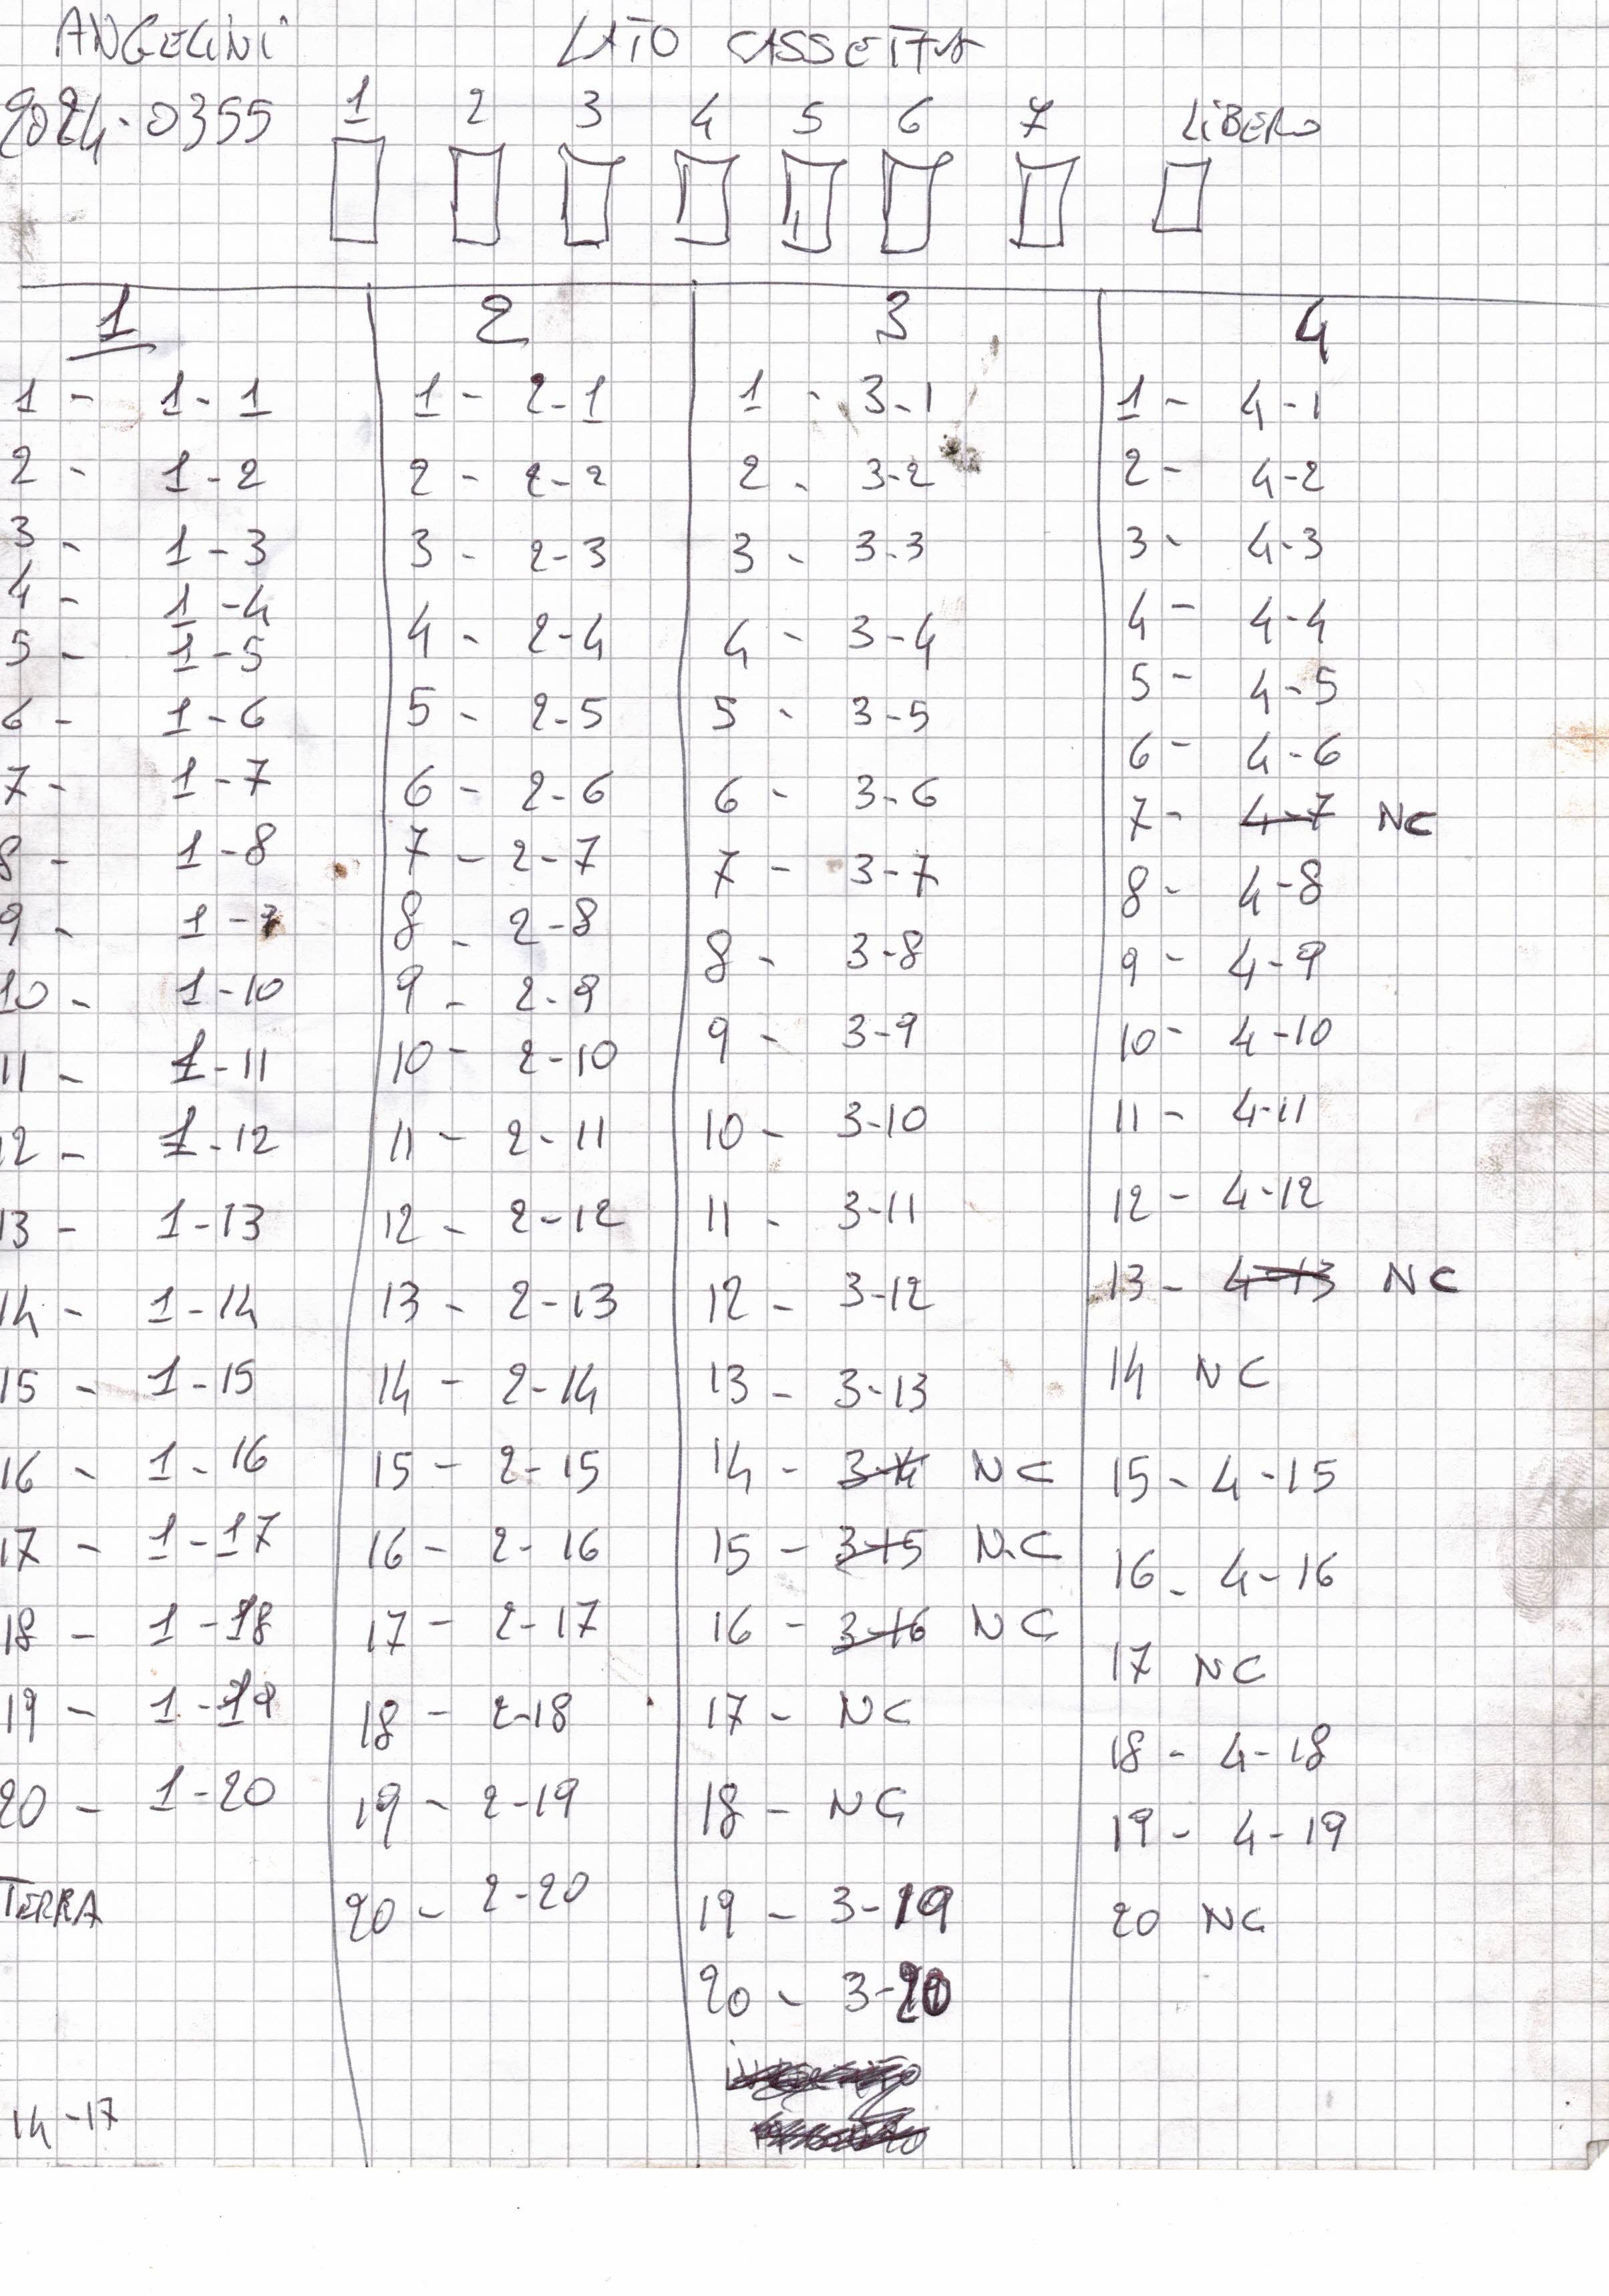 ANGELINI LATO CASSETTA
2024-0355 1 2 3 4 5 6 7 LIBERO
1 2 3 4
1 - 1-1 1 - 2-1 1 - 3-1 1 - 4-1
2 - 1-2 2 - 2-2 2 - 3-2 2 - 4-2
3 - 1-3 3 - 2-3 3 - 3-3 3 - 4-3
4 - 1-4 4 - 2-4 4 - 3-4 4 - 4-4
5 - 1-5 5 - 2-5 5 - 3-5 5 - 4-5
6 - 1-6 6 - 2-6 6 - 3-6 6 - 4-6
7 - 1-7 7 - 2-7 7 - 3-7 7 - 4-7 NC
8 - 1-8 8 - 2-8 8 - 3-8 8 - 4-8
9 - 1-9 9 - 2-9 9 - 3-9 9 - 4-9
10 - 1-10 10 - 2-10 10 - 3-10 10 - 4-10
11 - 1-11 11 - 2-11 11 - 3-11 11 - 4-11
12 - 1-12 12 - 2-12 12 - 3-12 12 - 4-12
13 - 1-13 13 - 2-13 13 - 3-13 13 - 4-13 NC
14 - 1-14 14 - 2-14 14 - 3-14 NC 14 NC
15 - 1-15 15 - 2-15 15 - 3-15 N.C 15 - 4-15
16 - 1-16 16 - 2-16 16 - 3-16 NC 16 - 4-16
17 - 1-17 17 - 2-17 17 - NC 17 NC
18 - 1-18 18 - 2-18 18 - NC 18 - 4-18
19 - 1-19 19 - 2-19 19 - 3-19 19 - 4-19
20 - 1-20 20 - 2-20 20 - 3-20 20 NC
TERRA
14-17